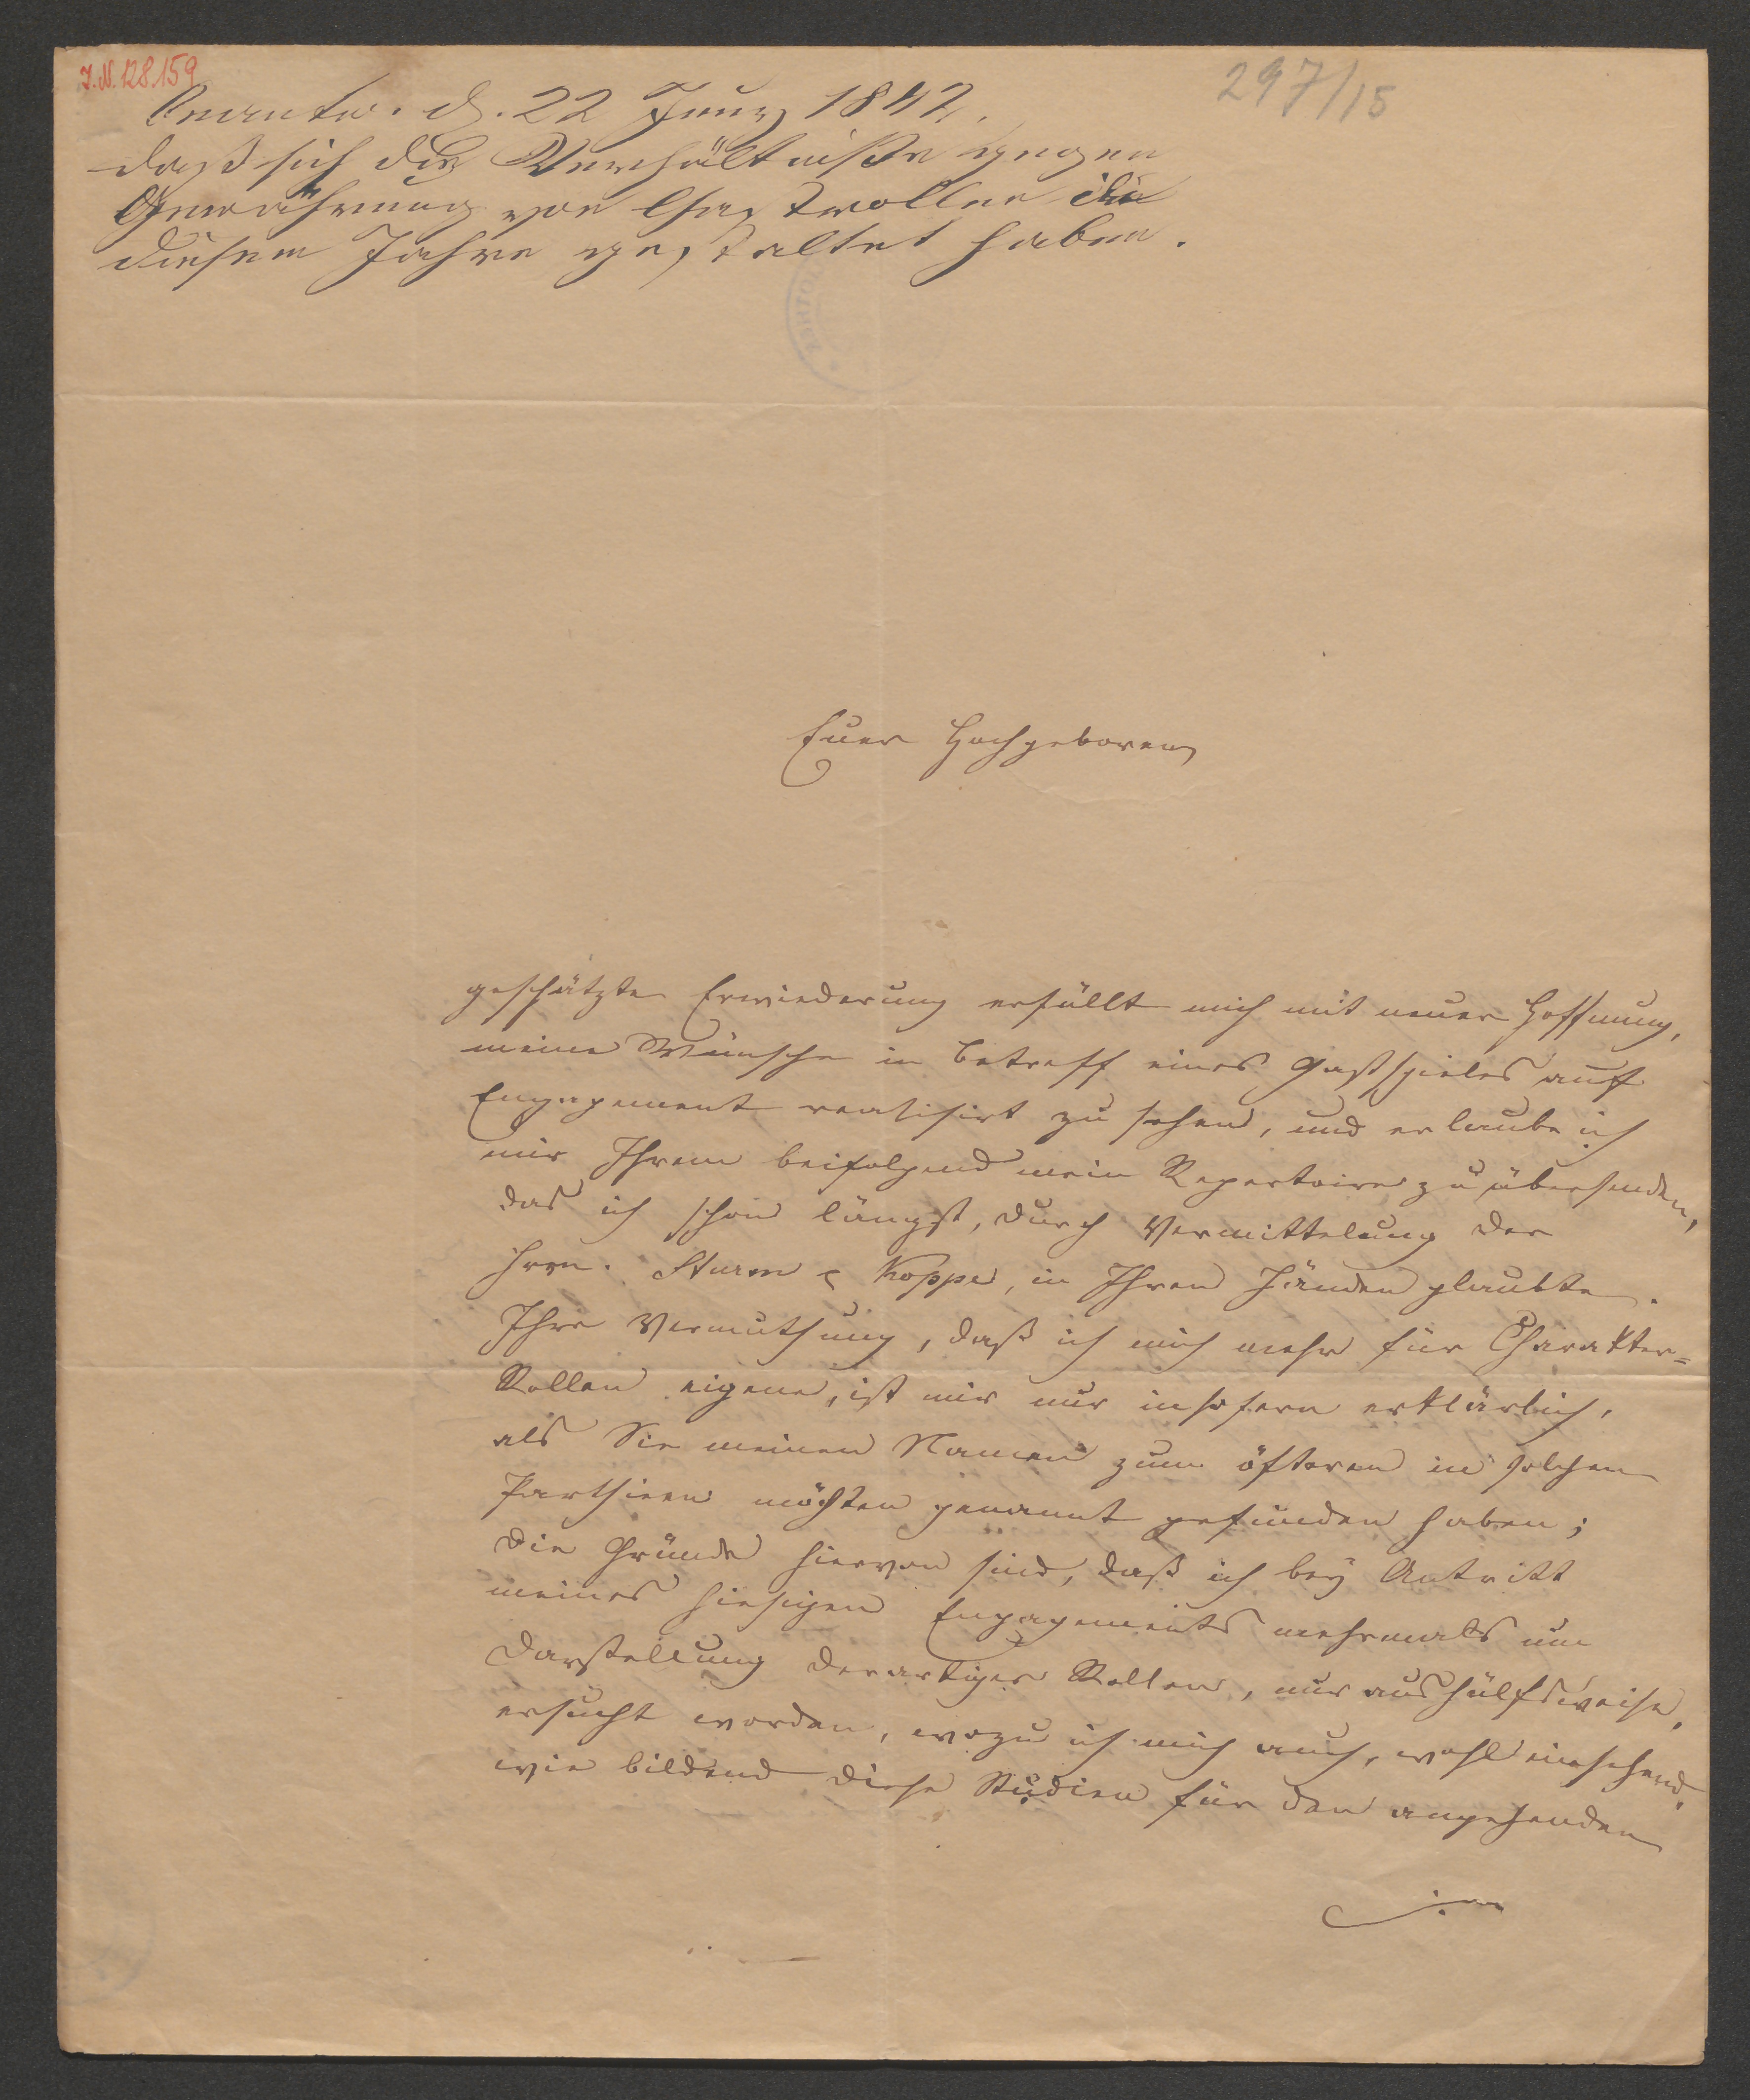 I.N. 128.159
297/15
Beantw. d. 22 Juny 1842.
daß sich die Verhältniße gegen
Gewährung von Gastrollen in
diesem Jahre gestaltet haben.
Euer Hochgeboren
geschätzte Erwiederung erfüllt mich mit neuer Hoffnung,
meine Wünsche in Betreff eines Gastspieles auf
Engagement realisirt zu sehen, und erlaube ich
mir Ihrem beifolgend mein Repertoire zu übersenden,
das ich schon längst, durch Vermittelung der
Hrrn. Sturm & Koppe, in Ihren Händen glaubte.
Ihre Vermuthung, daß ich mich mehr für Charakter=
Rollen eigene, ist mir nur insofern erklärlich,
als Sie meinen Namen zum öfteren in solchen
Parthieen möchten genannt gefunden haben;
die Gründe hiervon sind, daß ich bey Antritt
meines hiesigen Engagements mehrmals um
Darstellung derartiger Rollen, nur aushülfsweise,
ersucht worden, wozu ich mich auch, wohl einsehend,
wie bildend diese Studien für den angehenden